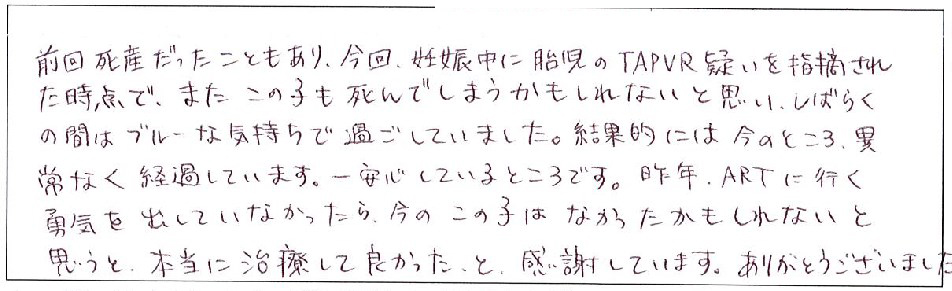 前回死産だったこともあり、今回、妊娠中に胎児のTAPVR疑いを指摘され
た時点で、またこの子も死んでしまうかもしれないと思い、しばらく
の間はブルーな気持ちで過ごしていました。結果的には今のところ、異
常なく経過しています。一安心しているところです。昨年、ARTに行く
勇気を出していなかったら、今のこの子はなかったかもしれないと
思うと、本当に治療して良かった、と、感謝しています。ありがとうございました